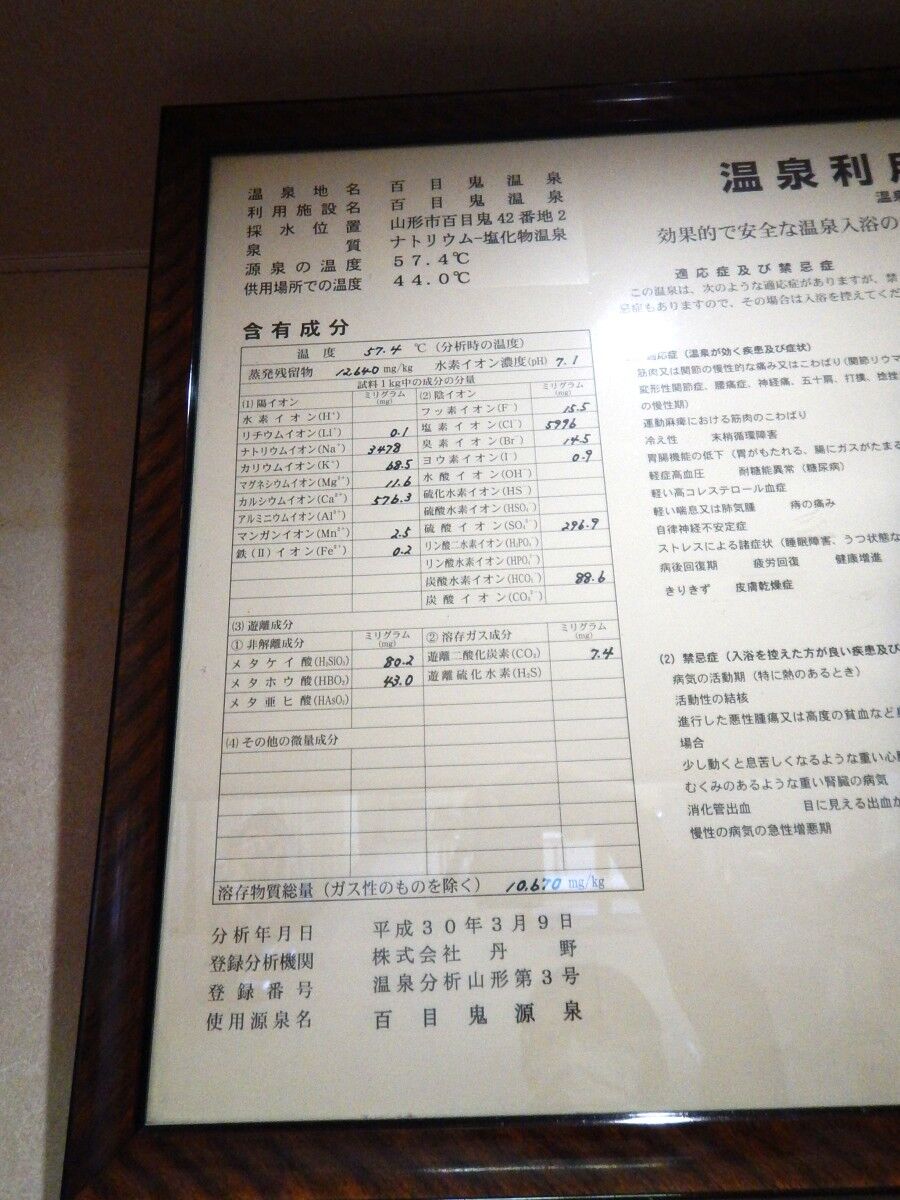 温泉地名 百目鬼温泉
利用施設名 百目鬼温泉
採水位置 山形市百目鬼42番地2
泉質 ナトリウム−塩化物温泉
源泉の温度 57.4℃
供用場所での温度 44.0℃
含有成分
温度 57.4 ℃(分析時の温度)
蒸発残留物 12640 mg/kg 水素イオン濃度(pH) 7.1
試料1kg中の成分の分量
(1)陽イオン ミリグラム(mg) (2)陰イオン ミリグラム(mg)
水素イオン(H⁺) フッ素イオン(F⁻) 15.5
リチウムイオン(Li⁺) 0.1 塩素イオン(Cl⁻) 5996
ナトリウムイオン(Na⁺) 3478 臭素イオン(Br⁻) 14.5
カリウムイオン(K⁺) 68.5 ヨウ素イオン(I⁻) 0.9
マグネシウムイオン(Mg²⁺) 11.6 水酸イオン(OH⁻)
カルシウムイオン(Ca²⁺) 576.3 硫化水素イオン(HS⁻)
アルミニウムイオン(Al³⁺) 硫酸水素イオン(HSO₄⁻)
マンガンイオン(Mn²⁺) 2.5 硫酸イオン(SO₄²⁻) 296.9
鉄(II)イオン(Fe²⁺) 0.2 リン酸二水素イオン(H₂PO₄⁻)
リン酸水素イオン(HPO₄²⁻)
炭酸水素イオン(HCO₃⁻) 88.6
炭酸イオン(CO₃²⁻)
(3)遊離成分
①非解離成分 ミリグラム(mg) ②溶存ガス成分 ミリグラム(mg)
メタケイ酸(H₂SiO₃) 80.2 遊離二酸化炭素(CO₂) 7.4
メタホウ酸(HBO₂) 43.0 遊離硫化水素(H₂S)
メタ亜ヒ酸(HAsO₂)
(4)その他の微量成分
溶存物質総量(ガス性のものを除く) 10.670 mg/kg
分析年月日 平成30年3月9日
登録分析機関 株式会社 丹野
登録番号 温泉分析山形第3号
使用源泉名 百目鬼源泉
温泉利用
温泉
効果的で安全な温泉入浴の
適応症及び禁忌症
この温泉は、次のような適応症がありますが、禁
忌症もありますので、その場合は入浴を控えてくだ
適応症(温泉が効く疾患及び症状)
筋肉又は関節の慢性的な痛み又はこわばり(関節リウマ
変形性関節症、腰痛症、神経痛、五十肩、打撲、捻挫
の慢性期)
運動麻痺における筋肉のこわばり
冷え性 末梢循環障害
胃腸機能の低下(胃がもたれる、腸にガスがたまる
軽症高血圧 耐糖能異常(糖尿病)
軽い高コレステロール血症
軽い喘息又は肺気腫 痔の痛み
自律神経不安定症
ストレスによる諸症状(睡眠障害、うつ状態な
病後回復期 疲労回復 健康増進
きりきず 皮膚乾燥症
(2) 禁忌症(入浴を控えた方が良い疾患及び
病気の活動期(特に熱のあるとき)
活動性の結核
進行した悪性腫瘍又は高度の貧血など身
場合
少し動くと息苦しくなるような重い心臓
むくみのあるような重い腎臓の病気
消化管出血 目に見える出血が
慢性の病気の急性増悪期